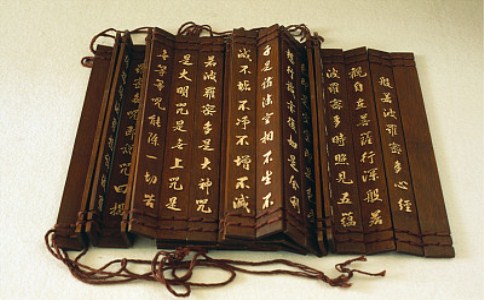 般若波羅密多心經
觀自在菩薩行深般若
波羅密多時照見五蘊
想行識亦復如是舍利
子是諸法空相不生不
滅不垢不淨不增不減
若波羅密多是大神咒
是大明咒是無上咒是
無等等咒能除一切苦